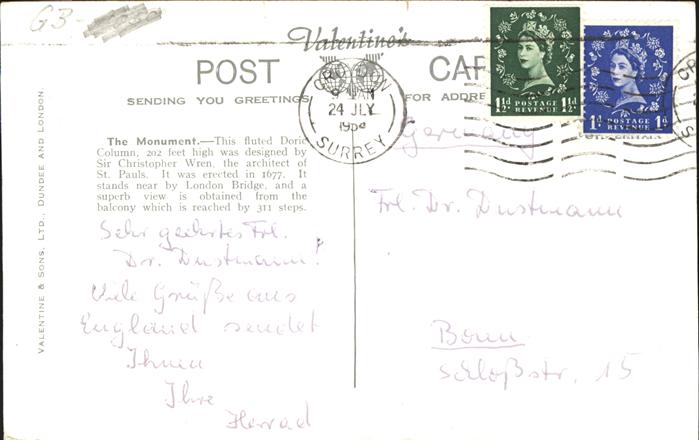 G3-
Valentine's
POST CARD
SENDING YOU GREETINGS
FOR ADDRE
CROYDON
24 JLY
SURREY
1½d POSTAGE REVENUE 1½d
1d POSTAGE REVENUE 1d
The Monument.—This fluted Doric
Column, 202 feet high was designed by
Sir Christopher Wren, the architect of
St. Pauls. It was erected in 1677. It
stands near by London Bridge, and a
superb view is obtained from the
balcony which is reached by 311 steps.
VALENTINE & SONS, LTD., DUNDEE AND LONDON.
Sehr geehrtes Frl.
Dr. Dustmann!
Viele Grüße aus
England sendet
Ihnen
Ihre
Herrad
Germany
Frl. Dr. Dustmann
Bonn
Schloßstr. 15